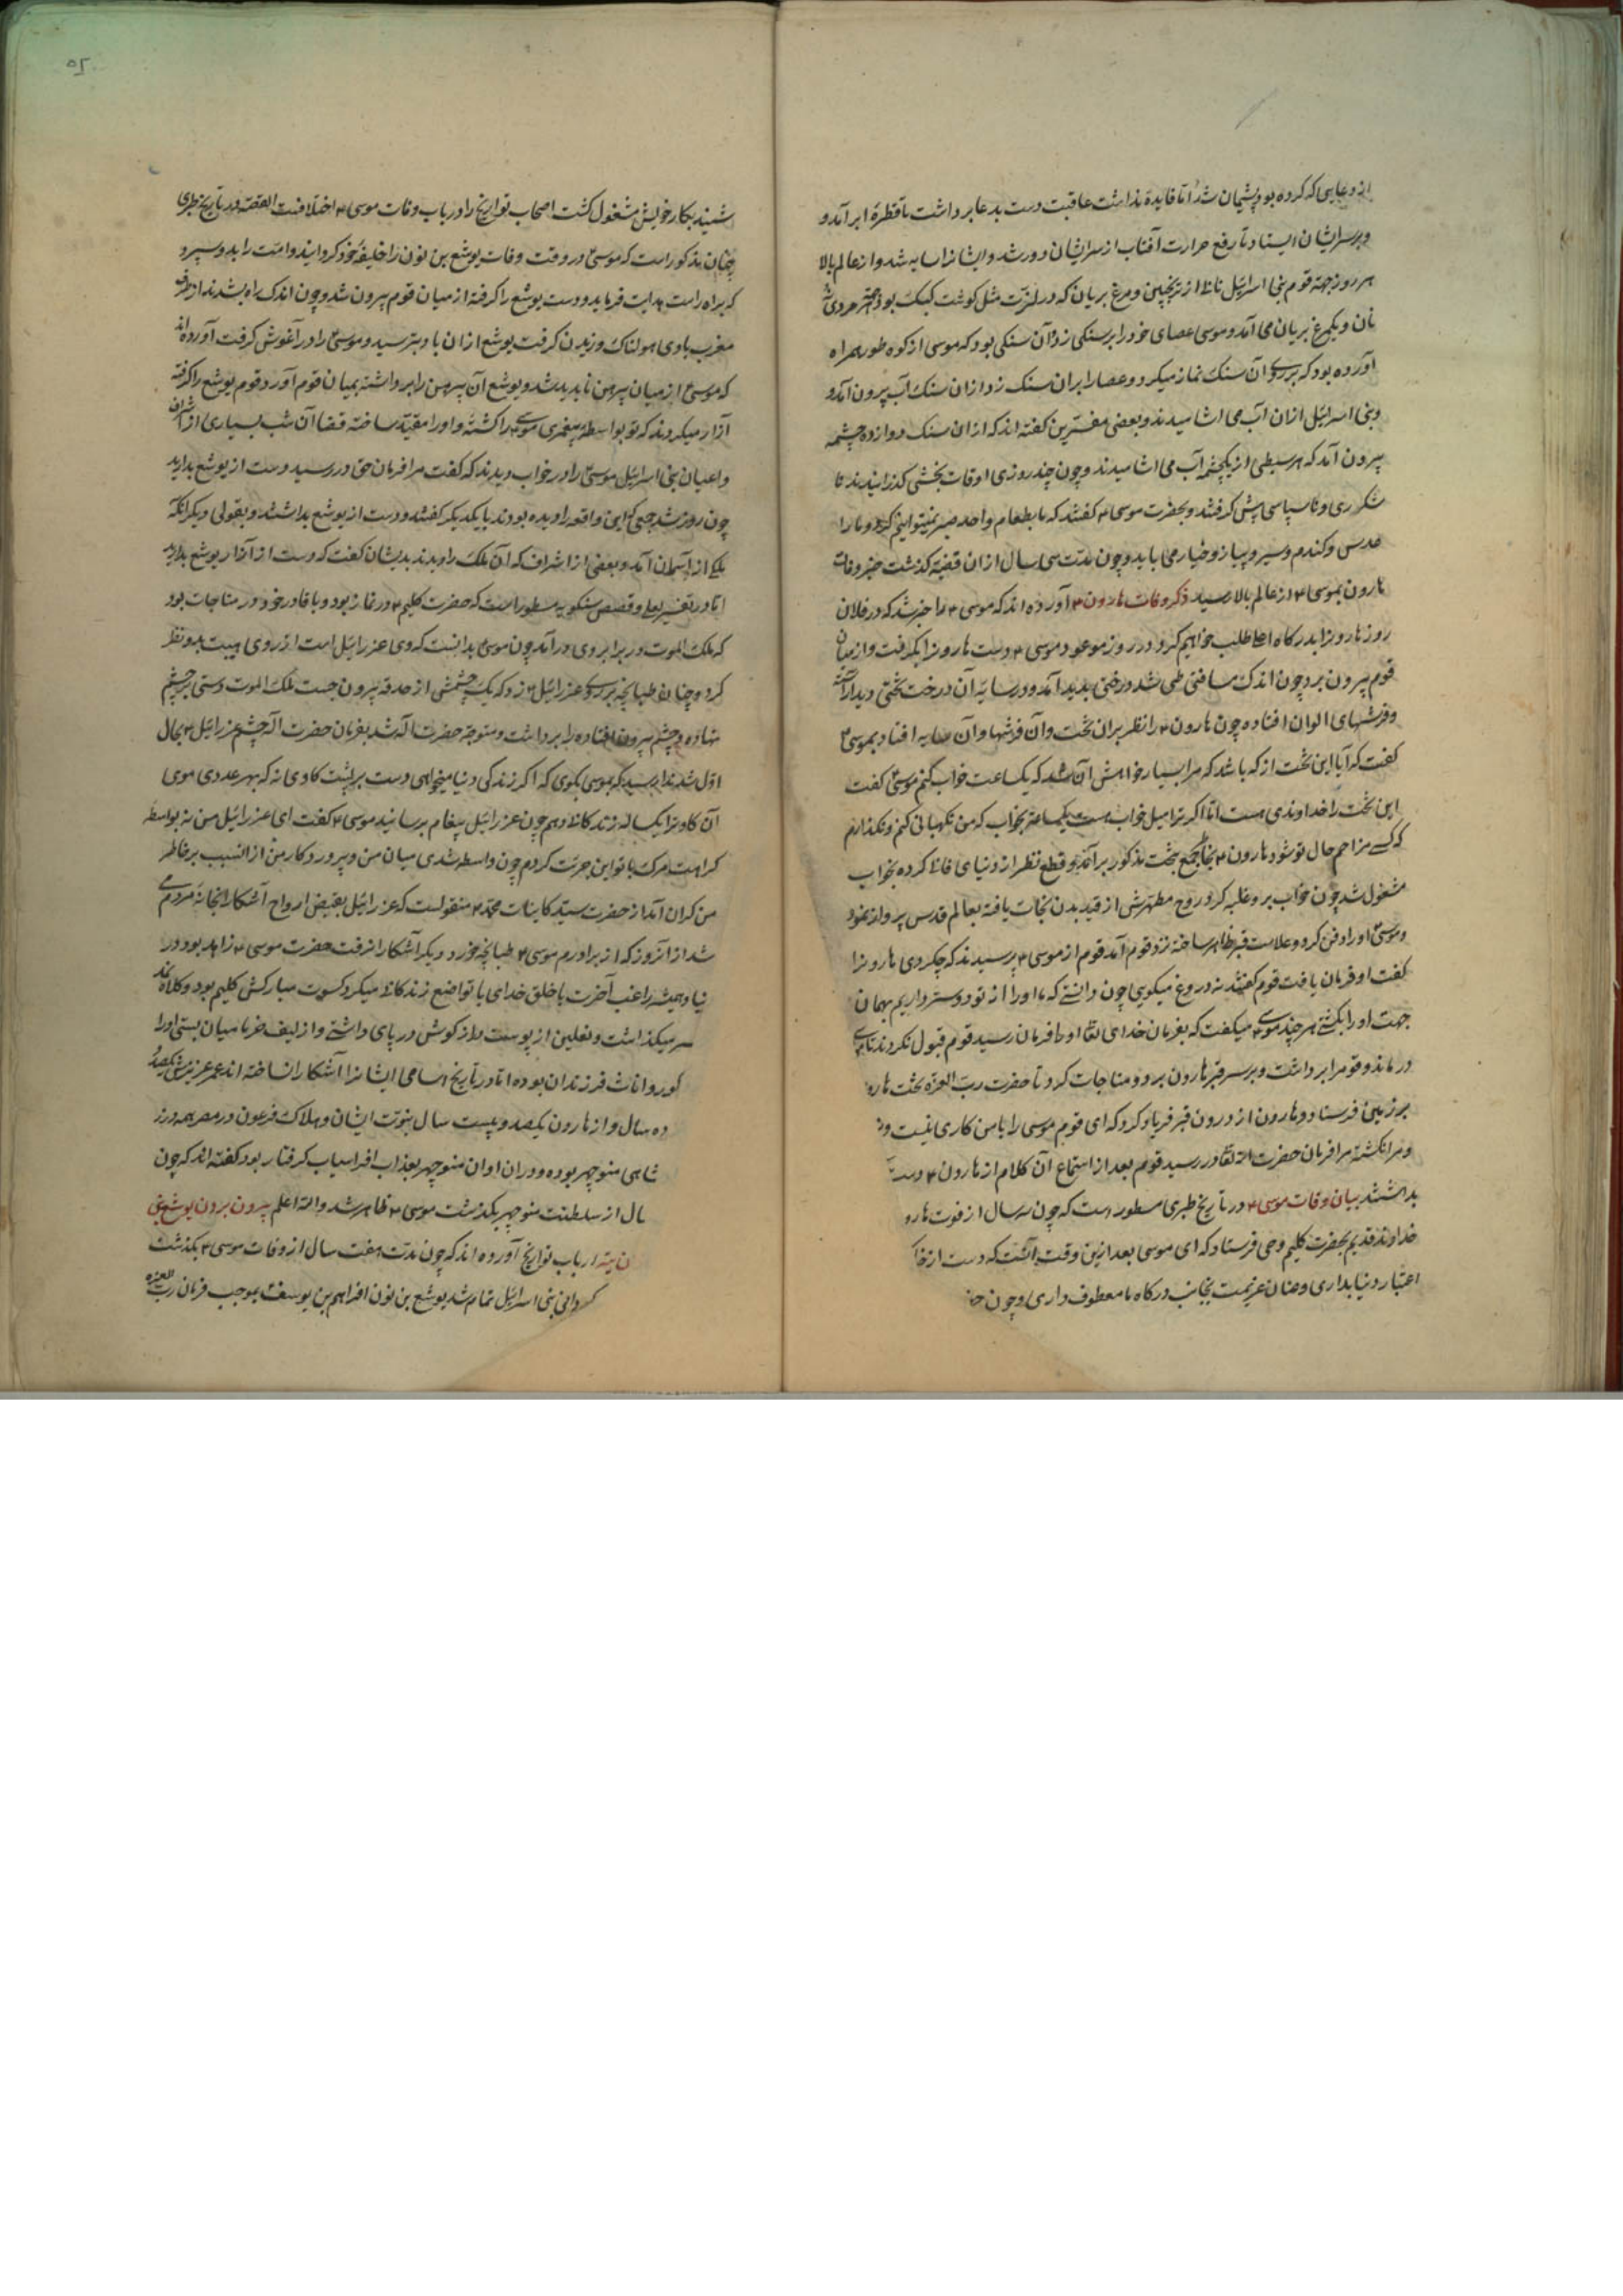 از دعایی که کرده بود پشیمان شد اما فایده نداشت عاقبت دست بدعا برداشت تا قطرهٔ ابر آمد و
و بر سر ایشان ایستاد تا رفع حرارت آفتاب از سر ایشان دور شد و ایشانرا سایه شد و از عالم بالا
هر روز جهة قوم بنی اسرائیل نانها از ترنجبین و مرغ بریان که در لذت مثل گوشت کبک بود جهة هر مردی
نان و یکمرغ بریان می آمد و موسی عصای خود را بر سنکی زد و آن سنکی بود که موسی از کوه طور همراه
آورده بود که بر روی آن سنک نماز میکرد و عصا را بران سنک زد از ان سنک آب بیرون آمد و
و بنی اسرائیل ازان آب می اشامیدند و بعضی مفسرین کفته اند که ازان سنک دوازده چشمه
بیرون آمد که هر سبطی از یکچشمه آب می اشامیدند و چون چند روزی اوقات بخشی کذرانیدند نا
شکری و ناسپاسی پیش کرفتند و بحضرت موسی ع کفتند که ما بطعام واحد صبر نمیتوانیم کرد و ما را
عدس و کندم و سیر و پیاز و خیار می باید و چون مدت سی سال از ان قضیه کذشت خبر وفات
هارون بموسی ع از عالم بالا رسید ذکر وفات هارون ع آورده اند که موسی ع را خبر شد که در فلان
روز هارونرا بدرکاه اعلا طلب خواهیم کرد و در روز موعود موسی ع دست هارونرا بکرفت و از میان
قوم بیرون برد چون اندک مسافتی طی شد درختی پدید آمد و در سایهٔ آن درخت تختی دید آراسته
و فرشهای الوان افتاده چون هارون ع را نظر بران تخت و آن فرشها و آن سایه افتاد بموسی ع
کفت که آیا این تخت از که باشد که مرا بسیار خواهش آن شد که یکساعت خواب کنم موسی ع کفت
این تخت را خداوندی هست اما اکر ترا میل خواب هست یکساعة بخواب که من نکهبانی کنم و نکذارم
که کسی مزاحم حال تو شود هارون ع بخاطر جمع بتخت مذکور بر آمد و قطع نظر از دنیای فانی کرده بخواب
مشغول شد چون خواب برو غلبه کرد روح مطهرش از قید بدن نجات یافته بعالم قدس پرواز نمود
و موسی ع او را دفن کرد و علامت قبر ظاهر ساخته نزد قوم آمد قوم از موسی ع پرسیدند که چکردی هارونرا
کفت او فرمان یافت قوم کفتند نه دروغ میکویی چون دانستی که ما او را از تو دوستر داریم بهمان
جهت او را بکشتی هر چند موسی ع میکفت که بفرمان خدای تعالی او را فرمان رسید قوم قبول نکردند تا موسی
در ماند و قومرا برداشت و بر سر قبر هارون برد و مناجات کرد تا حضرت رب العزة تخت هارو
بر زمین فرستاد و هارون از درون قبر فریاد کرد که ای قوم موسی را با من کاری نیست و
و مرا نکشته مرا فرمان حضرت الله تعالی در رسید قوم بعد از استماع آن کلام از هارون ع دست
بداشتند بیان وفات موسی ع در تاریخ طبری مسطور است که چون سه سال از فوت هارو
خداوند قدیم بحضرت کلیم وحی فرستاد که ای موسی بعد ازین وقت آنست که دست از خا
اعتبار دنیا بداری و عنان عزیمت بجانب درکاه ما معطوف داری و چون
شنید بکار خویش مشغول کشت اصحاب تواریخ را در باب وفات موسی ع اختلافست القصه در تاریخ طبری
چنان مذکور است که موسی ع در وقت وفات یوشع بن نون را خلیفهٔ خود کردانید و امت را بدو سپرد
که براه راست هدایت فرماید و دست یوشع را کرفته از میان قوم بیرون شد و چون اندک راه بشدند از طرف
مغرب بادی هولناک وزیدن کرفت یوشع از ان باد بترسید و موسی ع را در آغوش کرفت آورده اند
که موسی ع از میان پیرهن ناپدید شد و یوشع آن پیرهن را برداشته بمیان قوم آورد قوم یوشع را کرفته
آزار میکردند که تو بواسطهٔ پیغمبری موسی ع را کشتهٔ و او را مقید ساخته قضا آن شب بسیاری از اشراف
و اعیان بنی اسرائیل موسی ع را در خواب دیدند که کفت مرا فرمان حق در رسید دست از یوشع بدارید
چون روز شد جمعی که این واقعه را دیده بودند با یکدیکر کفتند و دست از یوشع بداشتند و بقولی دیکر آنکه
ملکی از آسمان آمد و بعضی از اشراف که آن ملک را دیدند بدیشان کفت که دست از آزار یوشع بدارید
اما در تفسیر و قصص مسطور است که حضرت کلیم ع در نماز بود و با قادر خود در مناجات بود
که ملک الموت در برابر وی در آمد چون موسی ع بدانست که وی عزرائیل است از روی هیبت بدو نظر
کرد و چنان طپانچه بر روی عزرائیل ع زد که یک چشمش از حدقه بیرون جست ملک الموت دستی بر چشم
نهاده و چشم بیرون افتاده را برداشت و متوجه حضرت اله شد بفرمان حضرت اله چشم عزرائیل ع بحال
اول شد ندا رسید که بموسی بکوی که اکر زندکی دنیا میخواهی دست بر پشت کاوی نه که بهر عددی موی
آن کاو ترا یکساله زندکانی دهم چون عزرائیل پیغام برسانید موسی ع کفت ای عزرائیل من نه بواسطه
کراهت مرک با تو این جرئت کردم چون واسطه شدی میان من و پروردکار من از انسبب بر خاطر
من کران آمد از حضرت سید کاینات محمد ع منقولست که عزرائیل بقبض ارواح آشکارا بخانهٔ مردم می
شد از آنروز که از برادرم موسی ع طپانچه خورد دیکر آشکارا نرفت حضرت موسی ع زاهد بود در
نیا و همیشه راغب آخرت با خلق خدای با تواضع زندکانی میکرد کسوت مبارکش کلیم بود و کلاه نمد
سر میکذاشت و نعلین از پوست دراز کوش در پای داشتی و از لیف خرما میان بستی او را
کور و اناث فرزندان بوده اما در تاریخ اسامی ایشانرا آشکارا نساخته اند عمر عزیزش یکصد
ده سال و از هارون یکصد و بیست سال نبوت ایشان و هلاک فرعون در مصر همه در ز
شاهی منوچهر بوده و دران اوان منوچهر بعذاب افراسیاب کرفتار بود کفته اند که چون
ال از سلطنت منوچهر بکذشت موسی ع ظاهر شد والله اعلم بیرون بردن یوشع بنی
از تیه ارباب تواریخ آورده اند که چون مدت هفت سال از وفات موسی ع بکذشت
کردانی بنی اسرائیل تمام شد یوشع بن نون افراهیم بن یوسف ع بموجب فرمان رب العزه